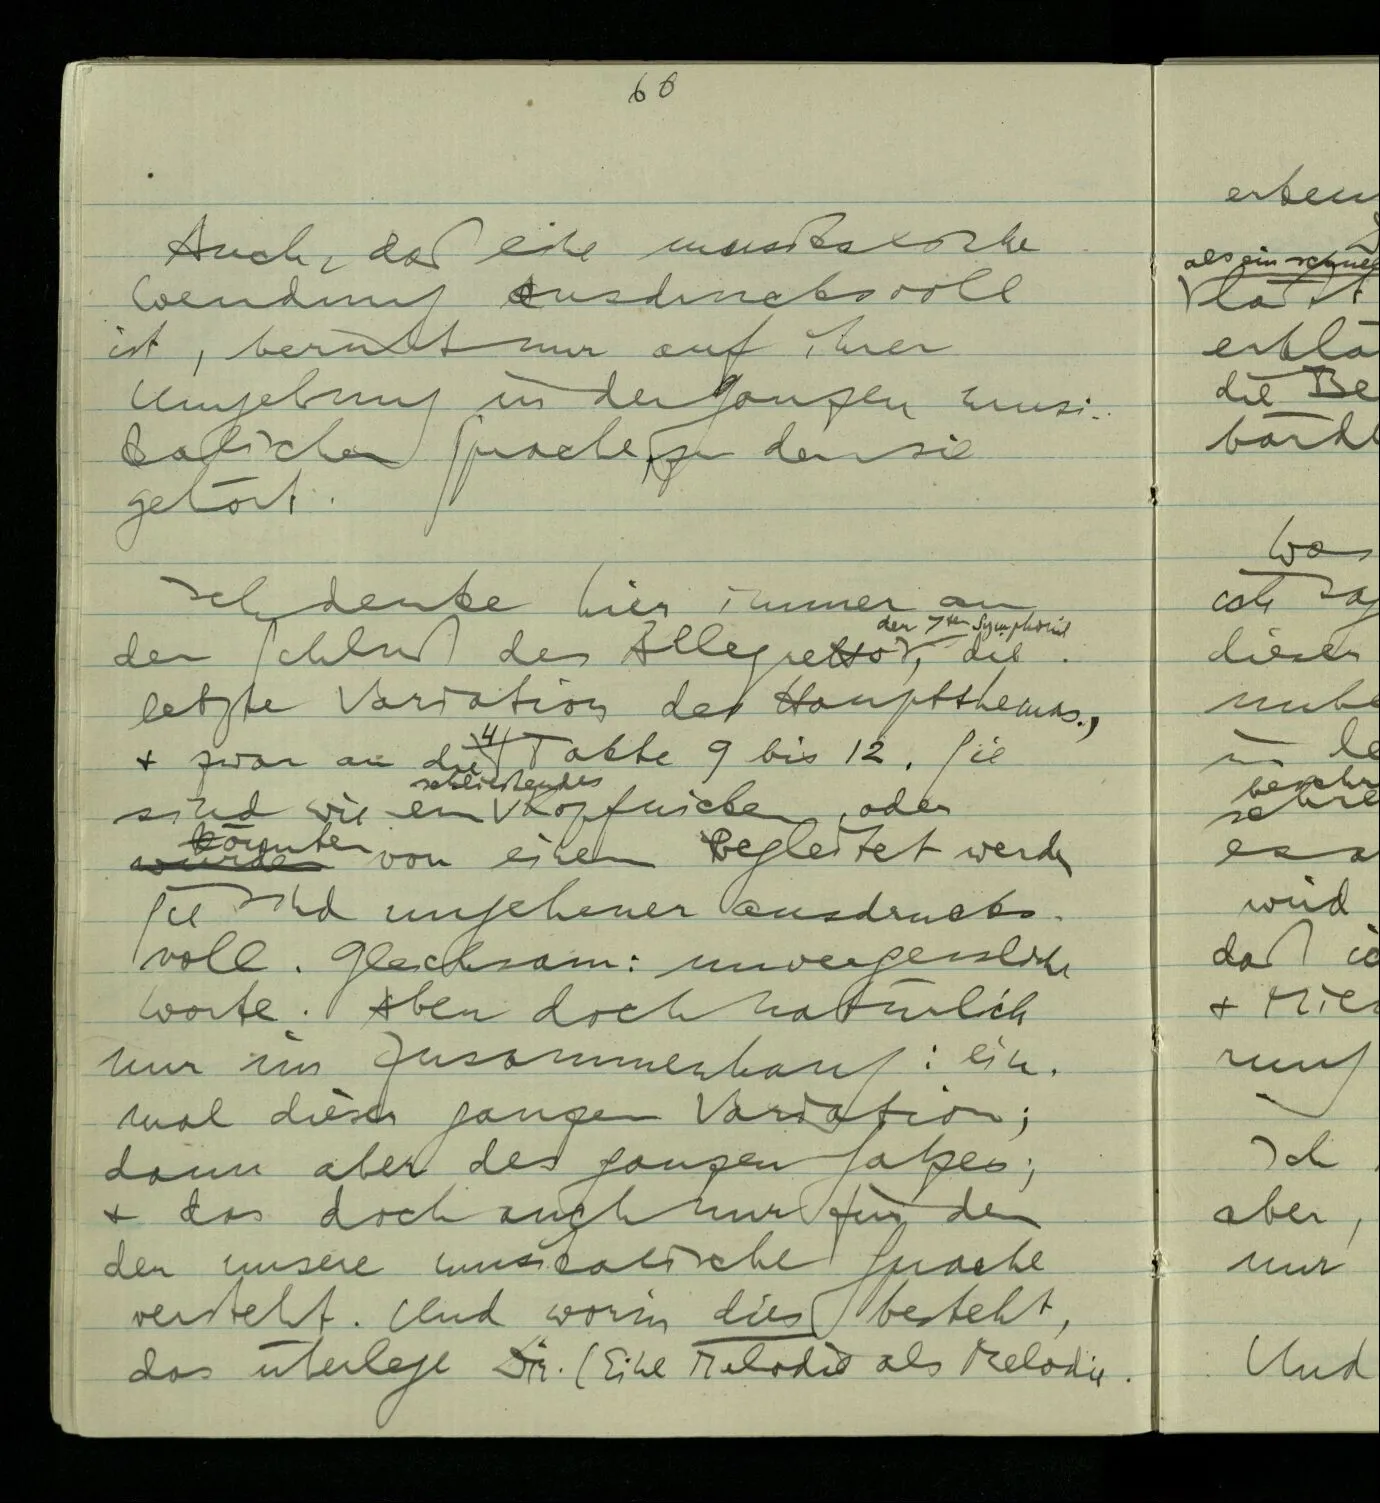 60
Auch, daß eine musikalische
Wendung Ausdrucksvoll
ist, beruht nur auf ihrer
Umgebung in der ganzen musi-
kalischen Sprache, zu der sie
gehört.
Ich denke hier immer an
der 7ten Symphonie
den Schluß des Allegretto, die
letzte Variation des Hauptthemas,
4
+ zwar an die Takte 9 bis 12. Sie
schließendes
sind wie ein Kopfnicken, oder
könnten
würden von einem begleitet werden
Sie sind ungeheuer ausdrucks-
voll. Gleichsam: unvergessliche
Worte. Aber doch natürlich
nur im Zusammenhang: ein-
mal dieser ganzen Variation;
dann aber des ganzen Satzes;
+ das doch auch nur für den
der unsere musikalische Sprache
versteht. Und worin dies besteht,
das überlege Dir. (Eine Melodie als Melodie
als ein
die Be
Was
ich
dieser
in
es
wird
daß
+
Ich
aber,
nur
Und